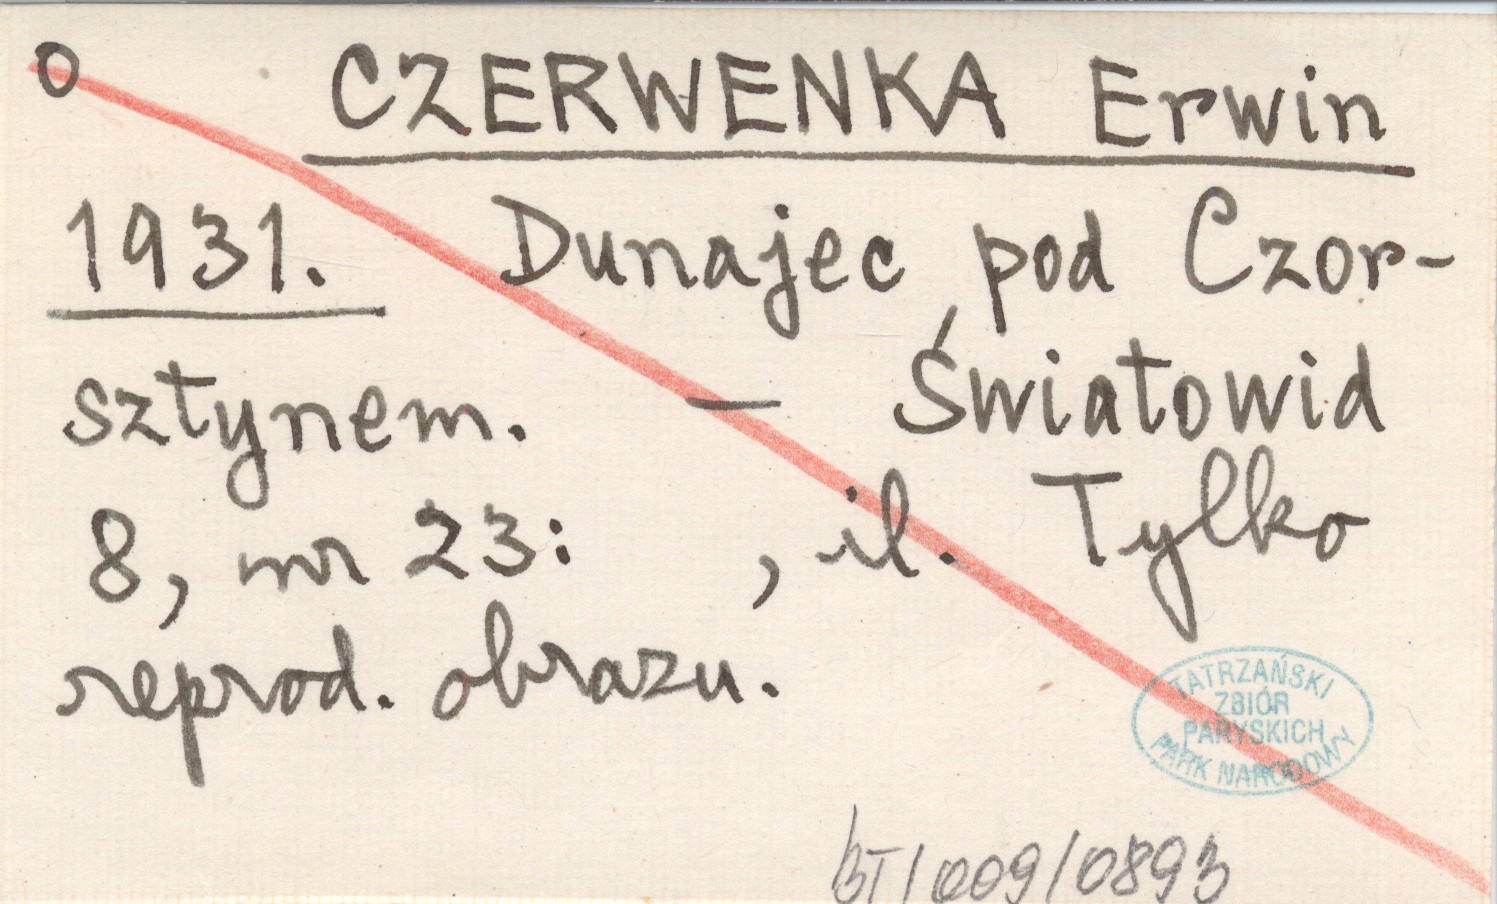 o CZERWENKA Erwin
1931. Dunajec pod Czor-
sztynem. — Światowid
8, nr 23: , il. Tylko
reprod. obrazu.
TATRZAŃSKI
ZBIÓR
PARYSKICH
PARK NARODOWY
BT/009/0893